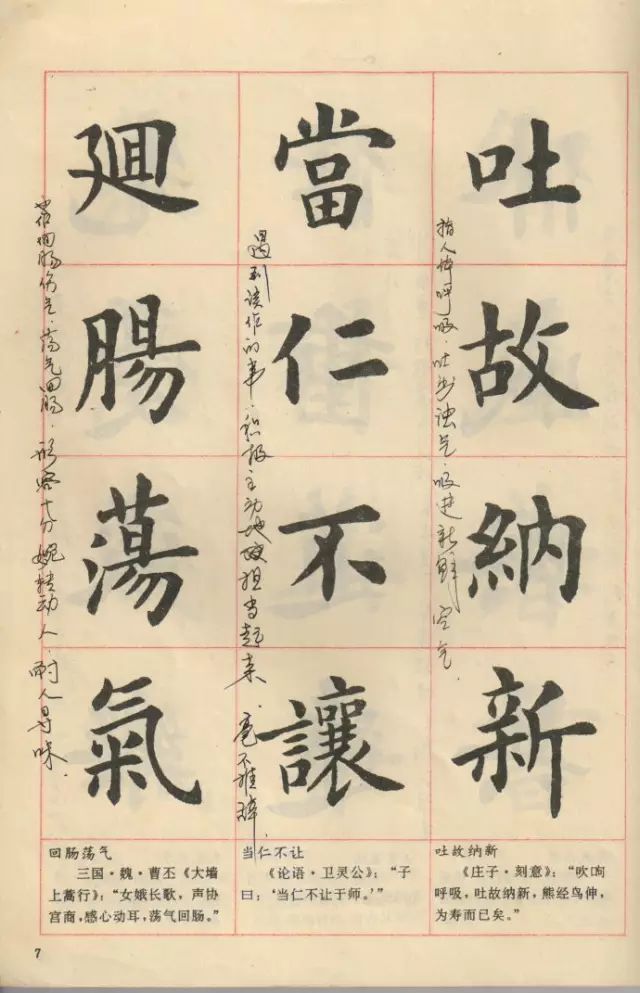 吐故納新
指人体呼吸，吐出浊气，吸进新鲜空气。
當仁不讓
遇到该作的事，积极主动地
担当起来，毫不推辞。
廻腸蕩氣
回肠伤气，荡气回肠，形容十分婉转动人，耐人寻味。
吐故纳新
《庄子·刻意》：“吹呴
呼吸，吐故纳新，熊经鸟伸，
为寿而已矣。”
当仁不让
《论语·卫灵公》：“子
曰：‘当仁不让于师。’”
回肠荡气
三国·魏·曹丕《大墙
上蒿行》：“女娥长歌，声协
宫商，感心动耳，荡气回肠。”
7